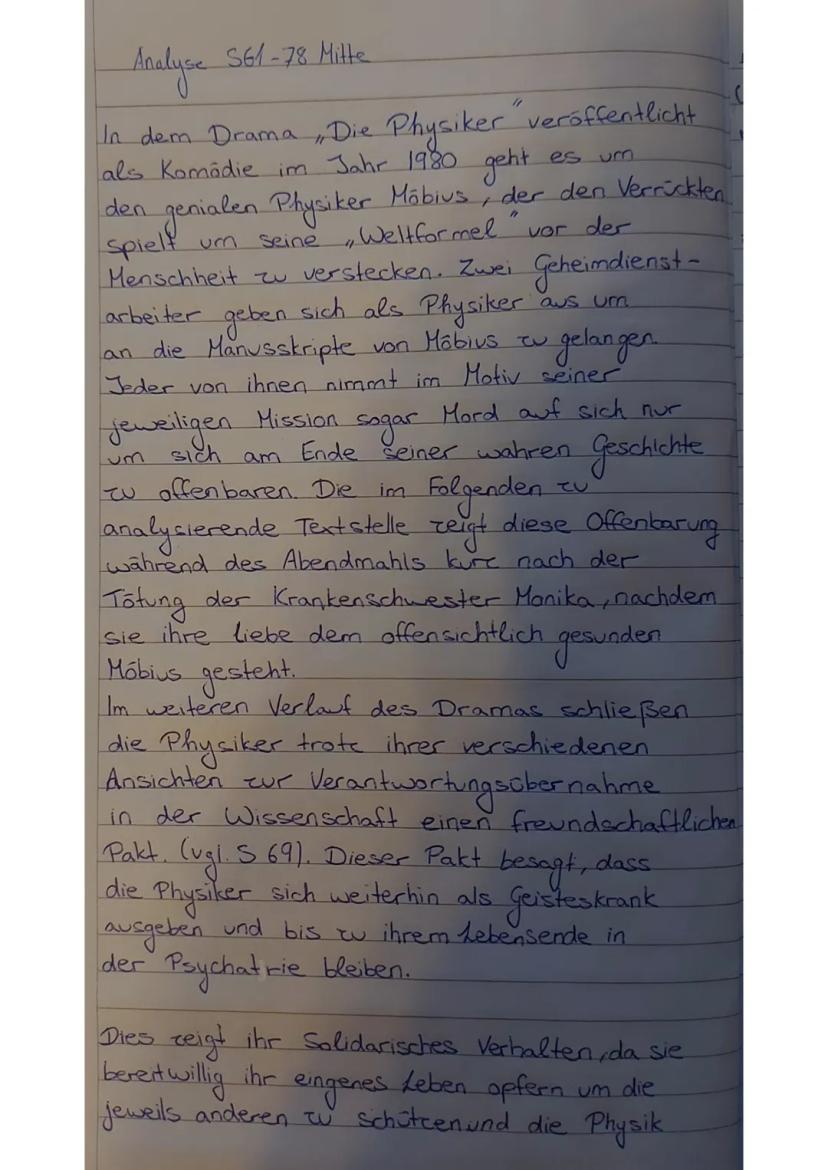 Analyse S61-78 Mitte
In dem Drama „Die Physiker" veröffentlicht
als Komödie im Jahr 1980 geht es um
den genialen Physiker Möbius, der den Verrückten
spielt um seine „Weltformel" vor der
Menschheit zu verstecken. Zwei Geheimdienst-
arbeiter geben sich als Physiker aus um
an die Manusskripte von Möbius zu gelangen.
Jeder von ihnen nimmt im Motiv seiner
jeweiligen Mission sogar Mord auf sich nur
um sich am Ende seiner wahren Geschichte
zu offenbaren. Die im Folgenden zu
analysierende Textstelle zeigt diese Offenbarung
während des Abendmahls kurz nach der
Tötung der Krankenschwester Monika, nachdem
sie ihre liebe dem offensichtlich gesunden
Möbius gesteht.
Im weiteren Verlauf des Dramas schließen
die Physiker trotz ihrer verschiedenen
Ansichten zur Verantwortungsübernahme
in der Wissenschaft einen freundschaftlichen
Pakt. (vgl. S 69). Dieser Pakt besagt, dass
die Physiker sich weiterhin als Geisteskrank
ausgeben und bis zu ihrem Lebensende in
der Psychatrie bleiben.
Dies zeigt ihr Solidarisches Verhalten, da sie
bereitwillig ihr eingenes Leben opfern um die
jeweils anderen zu schützen und die Physik